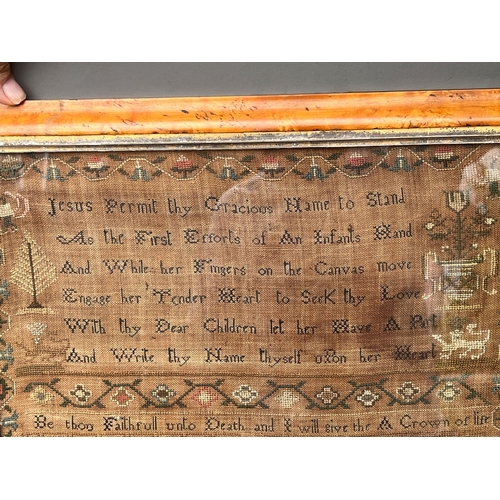 Jesus Permit thy Gracious Name to Stand
As the First Efforts of An Infants Hand
And While her Fingers on the Canvas move
Engage her Tender Heart to Seek thy Love
With thy Dear Children let her Have A Part
And Write thy Name thyself upon her Heart
Be thou Faithfull unto Death and I will give the A Crown of life